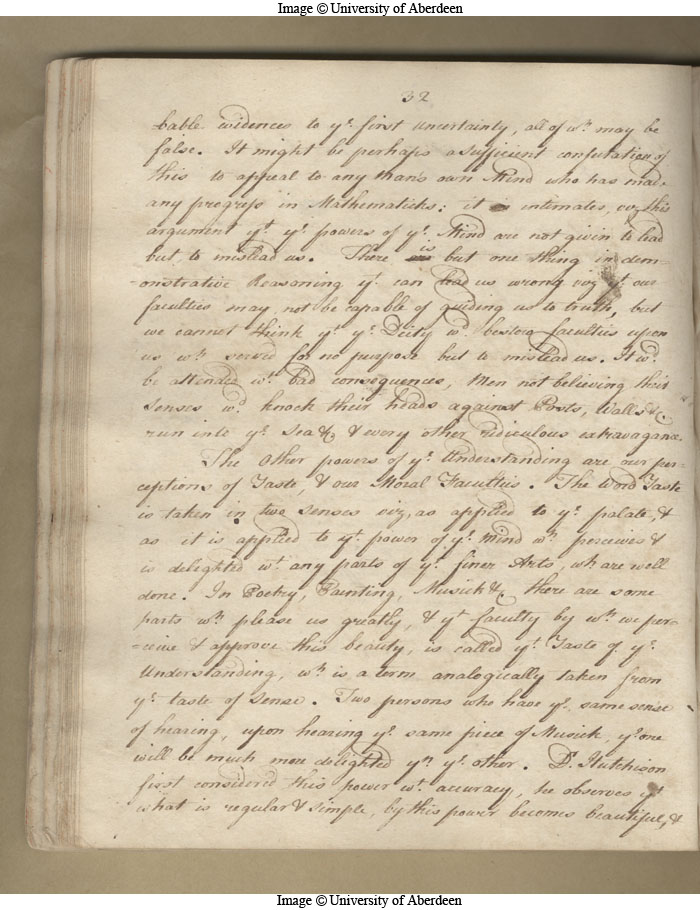 Image © University of Aberdeen
32
bable evidences to yᵉ first uncertainty, all of wʰ may be
false. It might be perhaps a sufficient confutation of
this to appeal to any Man's own Mind who has made
any progress in Mathematicks; it intimates, viz, this
argument yᵗ yᵉ powers of yᵉ Mind are not given to lead
but to mislead us. There is but one thing in dem-
-onstrative Reasoning yᵗ can lead us wrong viz yᵗ our
faculties may not be capable of guiding us to truth, but
we cannot think yᵗ yᵉ Deity wᵈ bestow faculties upon
us wʰ served for no purpose but to mislead us. It wᵈ
be attended wᵗ bad consequences, Men not believing their
senses wᵈ knock their heads against Posts, Walls &c
run into yᵉ Sea &c & every other ridiculous extravagance.
The Other powers of yᵉ Understanding are our per-
ceptions of Taste, & our Moral Faculties. The word Taste
is taken in two senses viz, as applied to yᵉ palate, &
as it is applied to yᵗ power of yᵉ mind wʰ perceives &
is delighted wᵗ any parts of yᵉ finer Arts, wh are well
done. In Poetry, Painting, Musick &c there are some
parts wʰ please us greatly, & yᵗ faculty by wʰ we per-
-ceive & approve this beauty, is called yᵉ Taste of yᵉ
Understanding, wʰ is a term analogically taken from
yᵉ taste of Sense. Two persons who have yᵉ same sense
of hearing, upon hearing yᵉ same piece of Musick, yᵉ one
will be much more delighted yⁿ yᵉ other. Dʳ Hutchison
first considered this power wᵗ accuracy, he observes yᵗ
what is regular & simple, by this power becomes beautiful, &
Image © University of Aberdeen